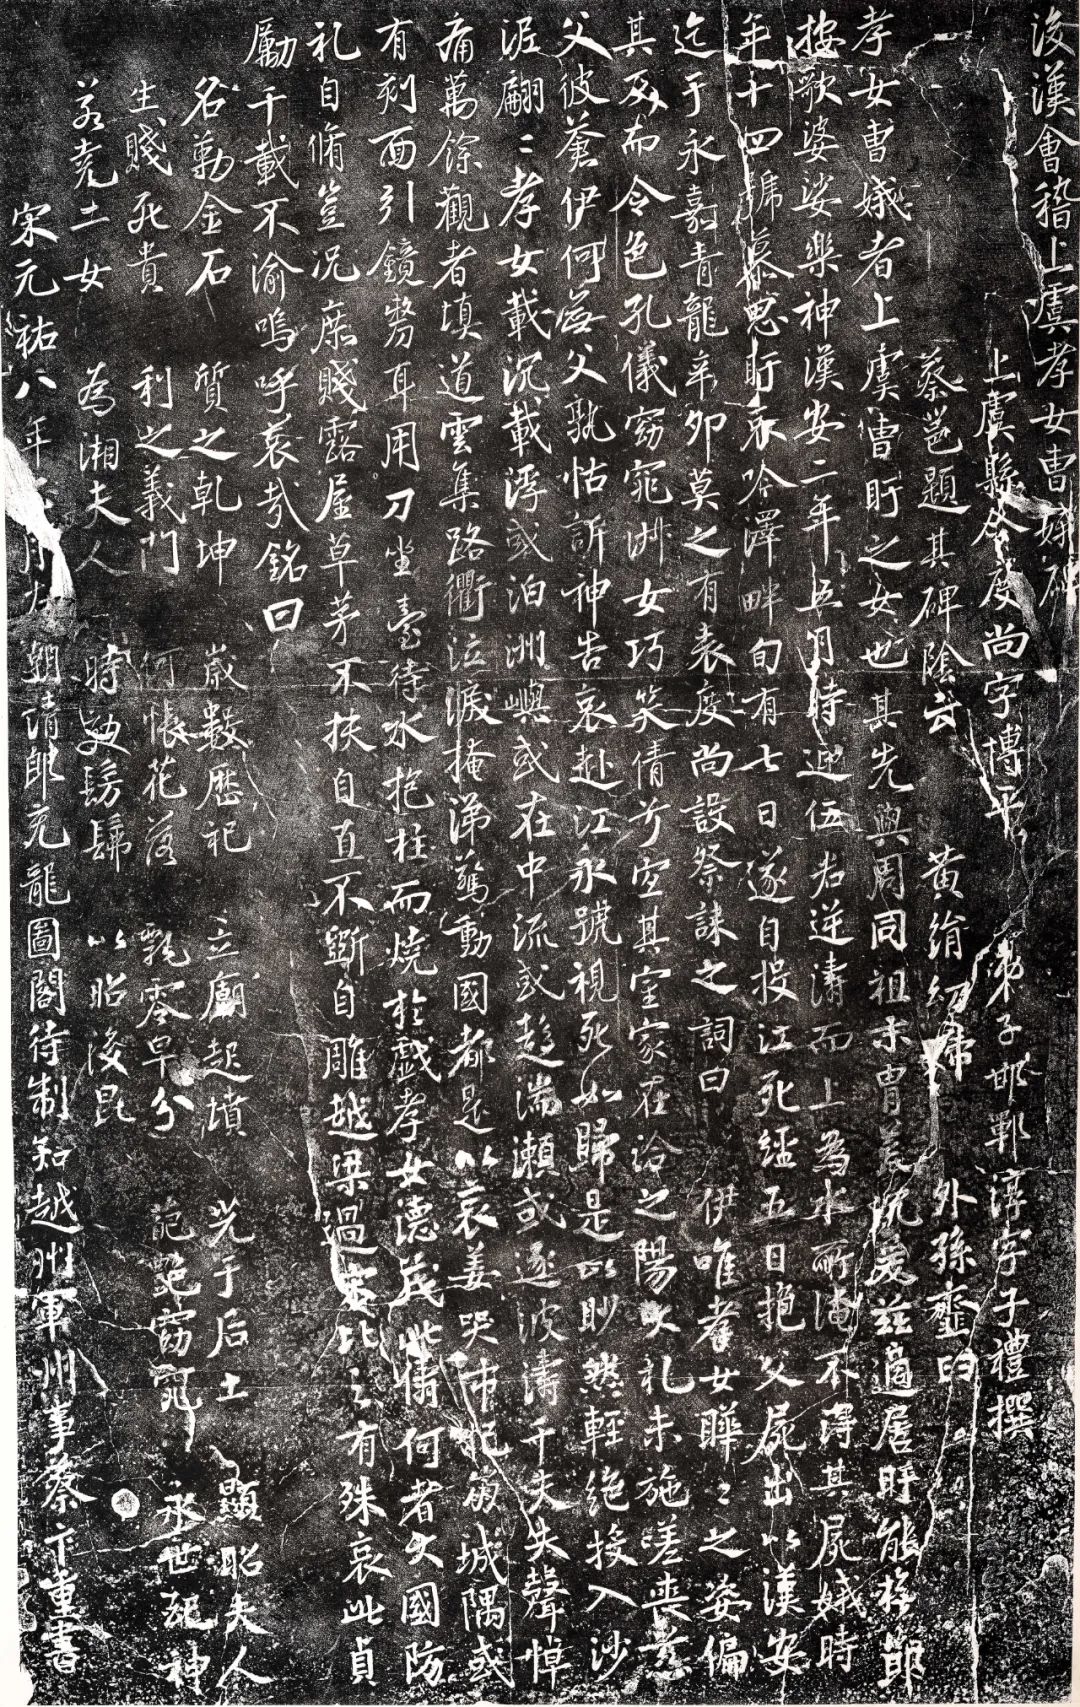 後漢會稽上虞孝女曹娥碑
上虞縣令度尚字博平 弟子邯鄲淳字子禮撰
蔡邕題其碑陰云 黃絹幼婦 外孫齏臼
孝女曹娥者上虞曹盱之女也其先與周同祖末胄荒沈爰茲適居盱能撫節
按歌婆娑樂神漢安二年五月時迎伍君逆濤而上為水所淹不得其屍娥時
年十四號慕思盱哀吟澤畔旬有七日遂自投江死經五日抱父屍出以漢安
迄于永嘉青龍辛卯莫之有表度尚設祭誄之詞曰 伊唯孝女曄〻之姿偏
其反而令色孔儀窈窕淑女巧笑倩兮宜其室家在洽之陽大礼未施嗟喪慈
父彼蒼伊何無父孰怙訴神告哀赴江永號視死如歸是以眇然輕絕投入沙
泥翩〻孝女載沉載浮或泊洲嶼或在中流或趨湍瀨或逐波濤千夫失聲悼
痛萬餘觀者填道雲集路衢泣淚掩涕驚動國都是以哀姜哭市杞崩城隅或
有刻面引鏡剺耳用刀坐臺待水抱柱而燒於戲孝女德茂此儔何者大國防
礼自脩豈況庶賤露屋草茅不扶自直不斵自雕越梁過宋比之有殊哀此貞
勵千載不渝嗚呼哀哉銘曰
名勒金石 質之乾坤 歲數歷祀 立廟起墳 光于后土 顯昭夫人
生賤死貴 利之義門 何悵花落 飄零早分 葩艷窈窕 永世配神
若堯二女 為湘夫人 時效髣髴 以昭後昆
宋元祐八年 月 朝請郎充龍圖閣待制知越州軍州事蔡卞重書